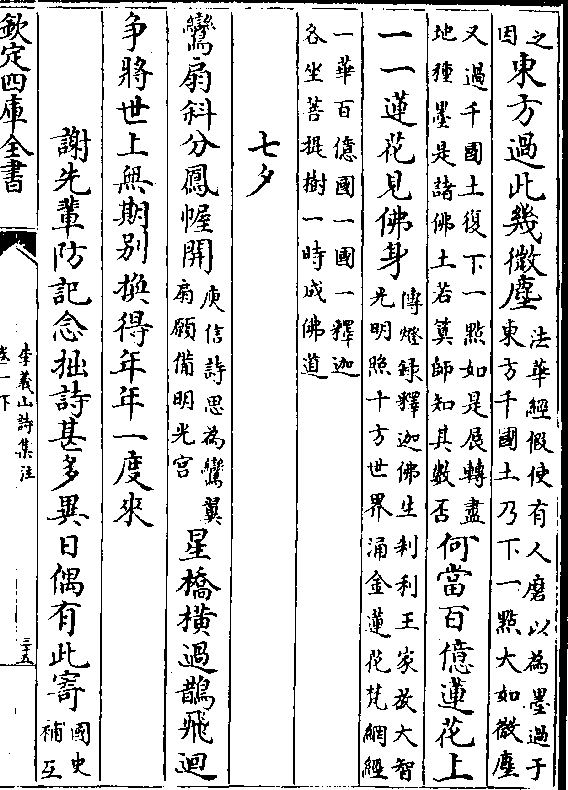 之
因
東方過此幾微塵
法華經假使有人磨以為墨過于
東方千國土乃下一點大如微塵
又過千國土復下一點如是展轉盡
地種墨是諸佛土若算師知其數否
何當百億蓮花上
一一蓮花見佛身
傳燈錄釋迦佛生刹利王家放大智
光明照十方世界涌金蓮花梵網經
一華百億國一國一釋迦
各坐菩提樹一時成佛道
七夕
鸞扇斜分鳳幄開
庾信詩思為鸞翼
扇願備明光宮
星橋橫過鵲飛迴
争將世上無期别換得年年一度來
謝先輩防記念拙詩甚多異日偶有此寄
國史
補互
欽定四庫全書
李義山詩集注
卷一下
三十五